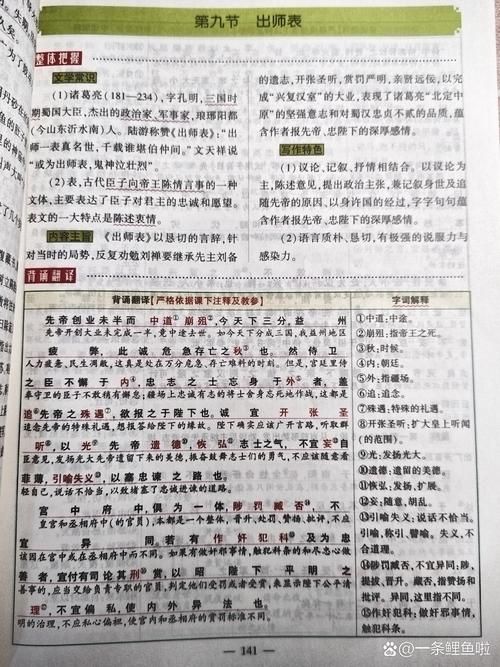 第九节 出师表
整体把握
文学常识
(1)诸葛亮(181—234),字孔明,三国时
期蜀国大臣,杰出的政治家、军事家,琅琊阳都
(今山东沂水南)人。陆游称赞《出师表》:“出
师一表真名世,千载谁堪伯仲间。”文天祥说
“或为出师表,鬼神泣壮烈”。
(2)表,古代臣子向帝王陈情言事的一种
文体,主要表现了臣子对君主的忠诚和愿望。
表文的一大特点是陈述衷情。
内容主旨 《出师表》以恳切的言辞,针
对当时的局势,反复劝勉刘禅要继承先主刘备
的遗志,开张圣听,赏罚严明,亲贤远佞,以完
成“兴复汉室”的大业,表现了诸葛亮“北定中
原”的坚强意志和对蜀汉忠贞不贰的品质,蕴
含作者报先帝、忠陛下的深厚感情。
写作特色
(1)议论、记叙、抒情相结合。以议论为
主,陈述意见,提出政治主张,兼记叙身世及追
随先帝的原因,以身许国的经过,字字句句蕴
含作者报先帝、忠陛下的深厚感情。
(2)语言质朴、恳切,有极强的说服力与
感染力。
背诵翻译
背诵翻译【严格依据课下注释及教参】
先帝创业未半而中道①崩殂②,今天下三分,益州
先帝开创业未完成一半,竟中途去世,如今天下分成三国,我益州地区
疲弊,此诚危急存亡之秋③也。然侍卫
人力疲惫,民生凋敝,这真是处在万分危急、存亡难料的时刻。但是,宫廷里侍
之臣不懈于内④,忠志之士忘身于外⑤者,盖
奉守卫的臣子不敢稍有懈怠;疆场上忠诚有志的将士舍身忘死地作战,这都是
追⑥先帝之殊遇⑦,欲报之于陛下也。诚宜开张圣
追念先帝的特殊礼遇,想报答给陛下的缘故。陛下确实应该广开言路,听取群
听⑧,以光⑨先帝遗德⑩,恢弘⑪志士之气,不宜妄⑫自
臣意见,发扬光大先帝遗留下来的美德,振奋鼓舞志士们的勇气,不应该随意看
菲薄,引喻失义⑬,以塞忠谏之路也。
轻自己,说话不恰当,以致堵塞了忠诚进谏的道路。
宫中府中,俱为一体,陟罚臧否⑭,不
皇宫和丞相府中(的官员),本都是一个整体,晋升、处罚、赞扬、批评,不应
宜异同。若有作奸犯科⑮及为忠
该因在宫中或在丞相府中而不同。如果有做奸邪事情、触犯科条的和尽忠心做
善者,宜付有司论其刑赏,以昭陛下平明之
善事的,应当交给负责专职的官员,判定他们受罚或者受赏,来显示陛下公平清
理,不宜偏私,使内外异法也。
明的治理,不应私心偏袒,使宫内和丞相府的赏罚标准不同。
字词解释
①中道:中途。
②崩殂:指帝王之死。
③秋:时候。
④内:朝廷。
⑤外:指疆场。
⑥追:追念。
⑦殊遇:特殊的礼遇。
⑧开张圣听:扩大皇上听闻
(的范围)。
⑨光:发扬光大。
⑩遗德:遗留的美德。
⑪恢弘:发扬、扩展。
⑫妄:随意、胡乱。
⑬引喻失义:说话不恰当。
引喻,称引、譬喻。失义,不
合道理。
⑭陟罚臧否,不宜异同:陟,
提拔、晋升。臧否,指赞扬和
批评。异同,这里指不同。
⑮作奸犯科:做奸邪事情,
触犯科条。
141
@一条鲤鱼啦